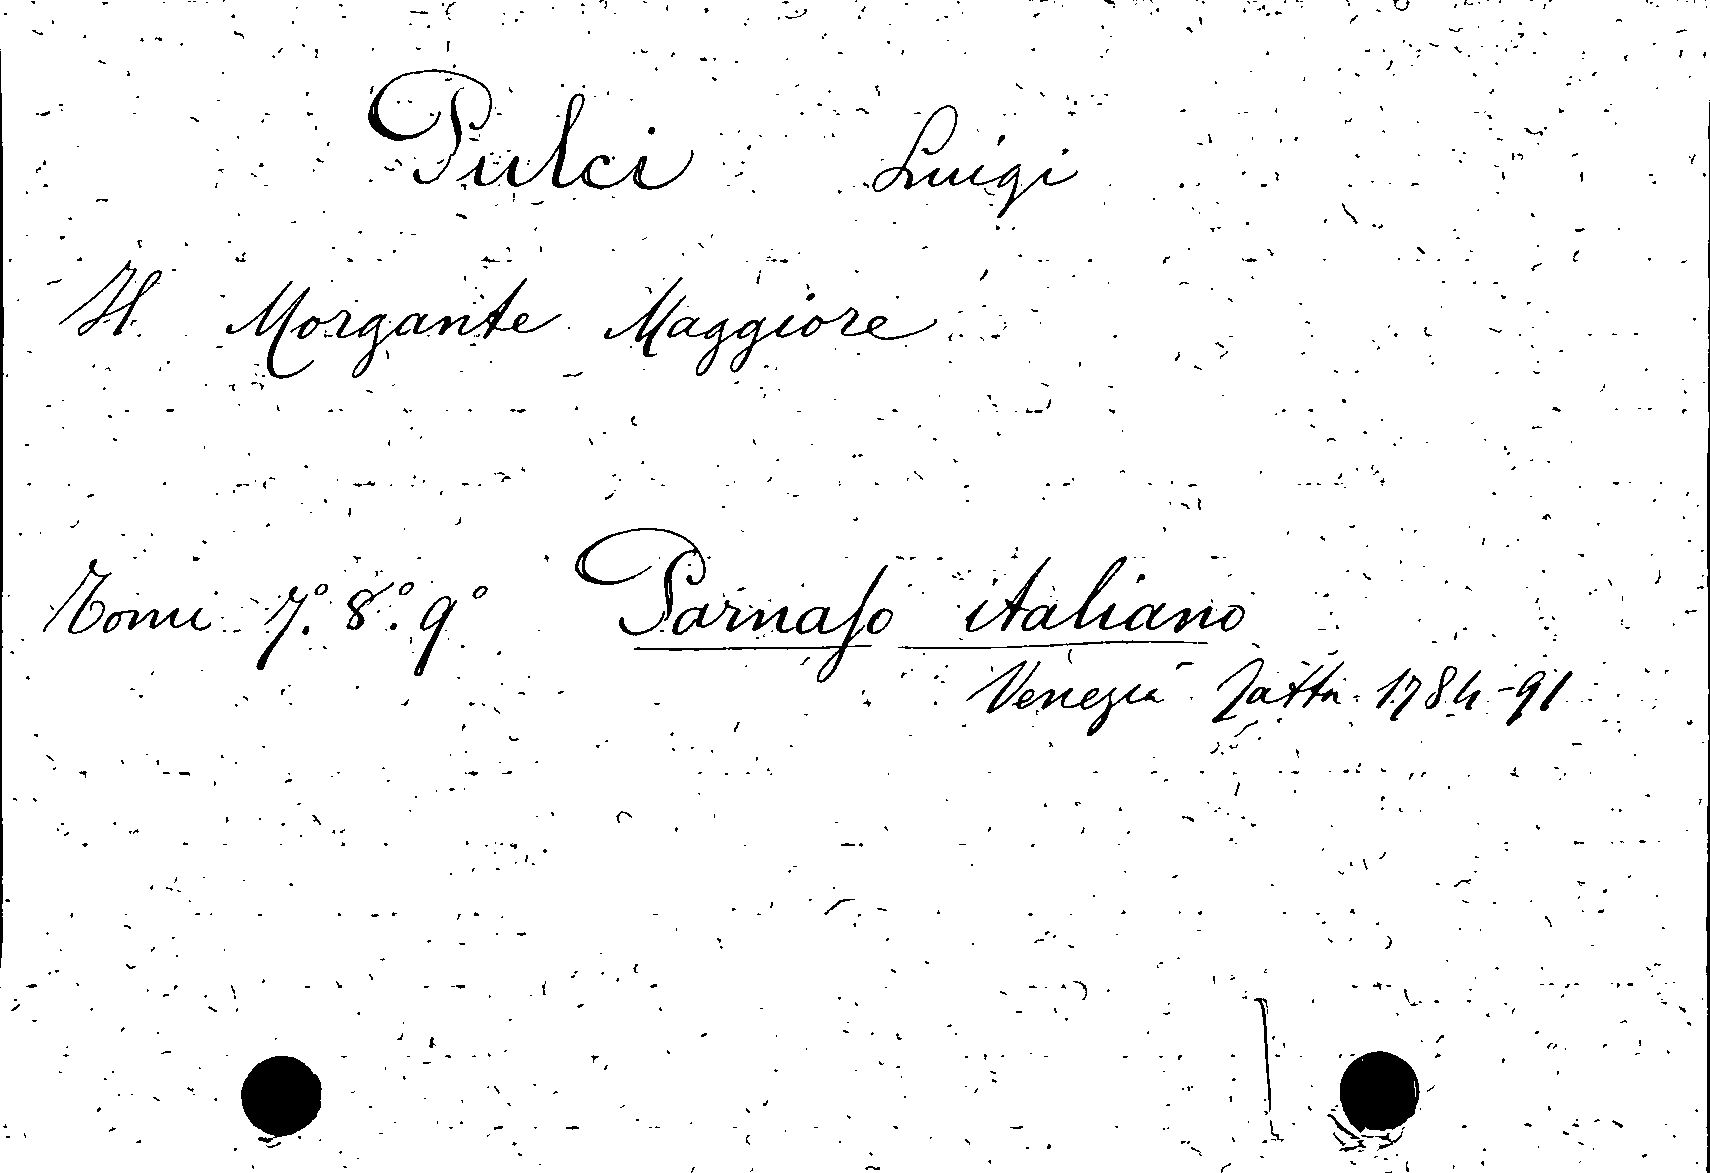 Pulci Luigi
Il Morgante Maggiore
Tomi 7º. 8º. 9º Parnaſo italiano
Venezia Zatta 1784-91